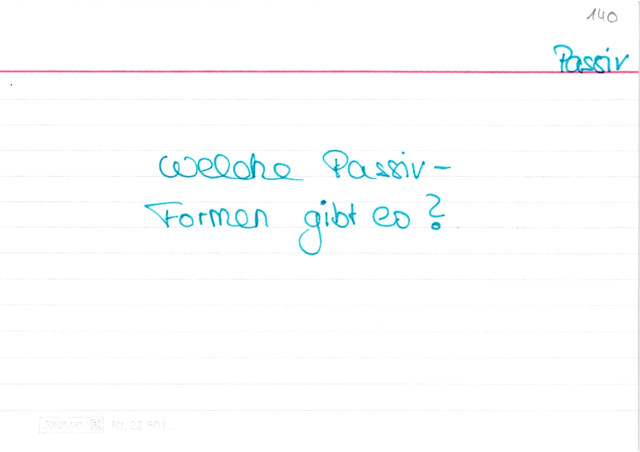 140
Passiv
Welche Passiv-
Formen gibt es?
Nr. 22 801